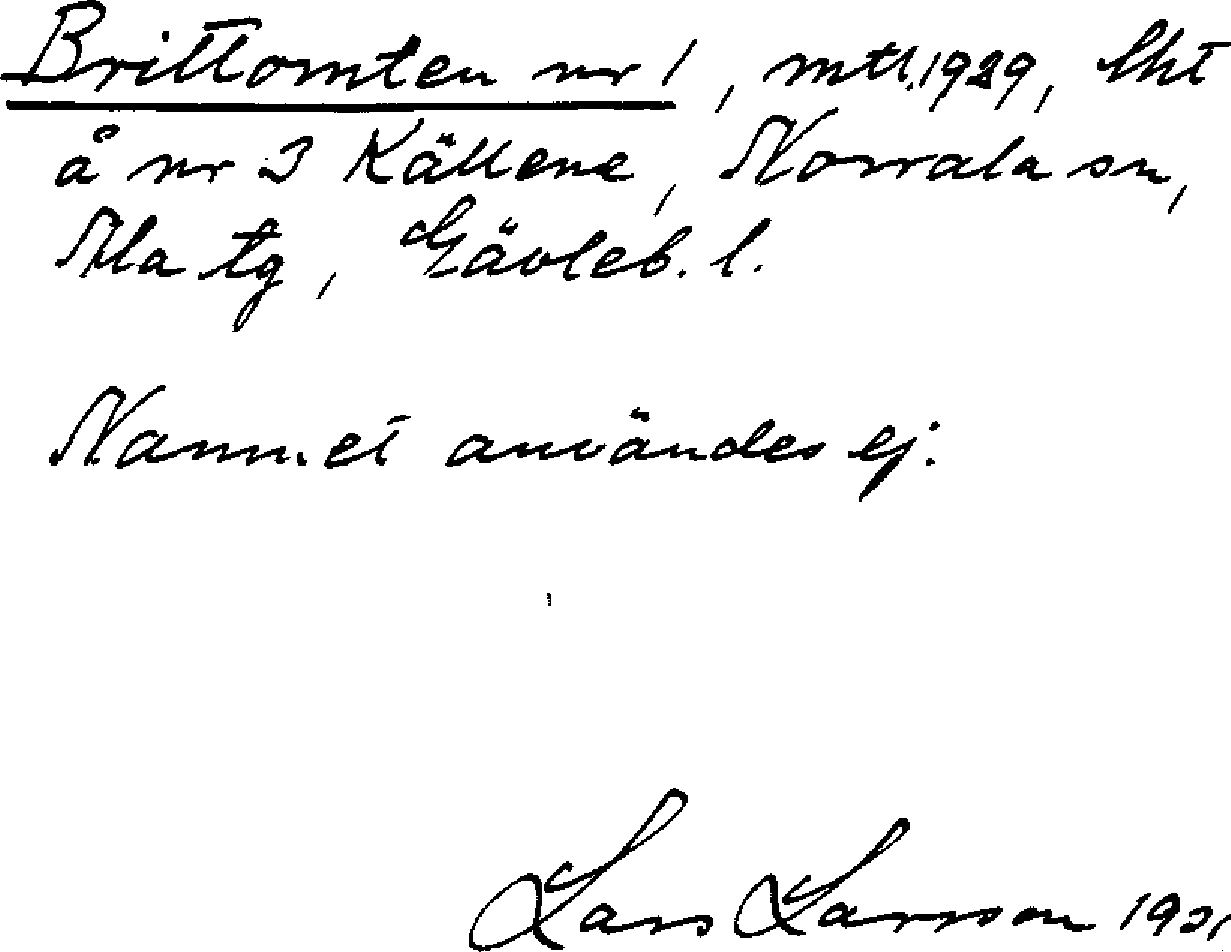 Brittomten nr 1, mtl. 1929, lht
å nr 3 Källene, Norrala sn,
Ala tg, Gävleb. l.
Namnet användes ej.
Lars Larsson